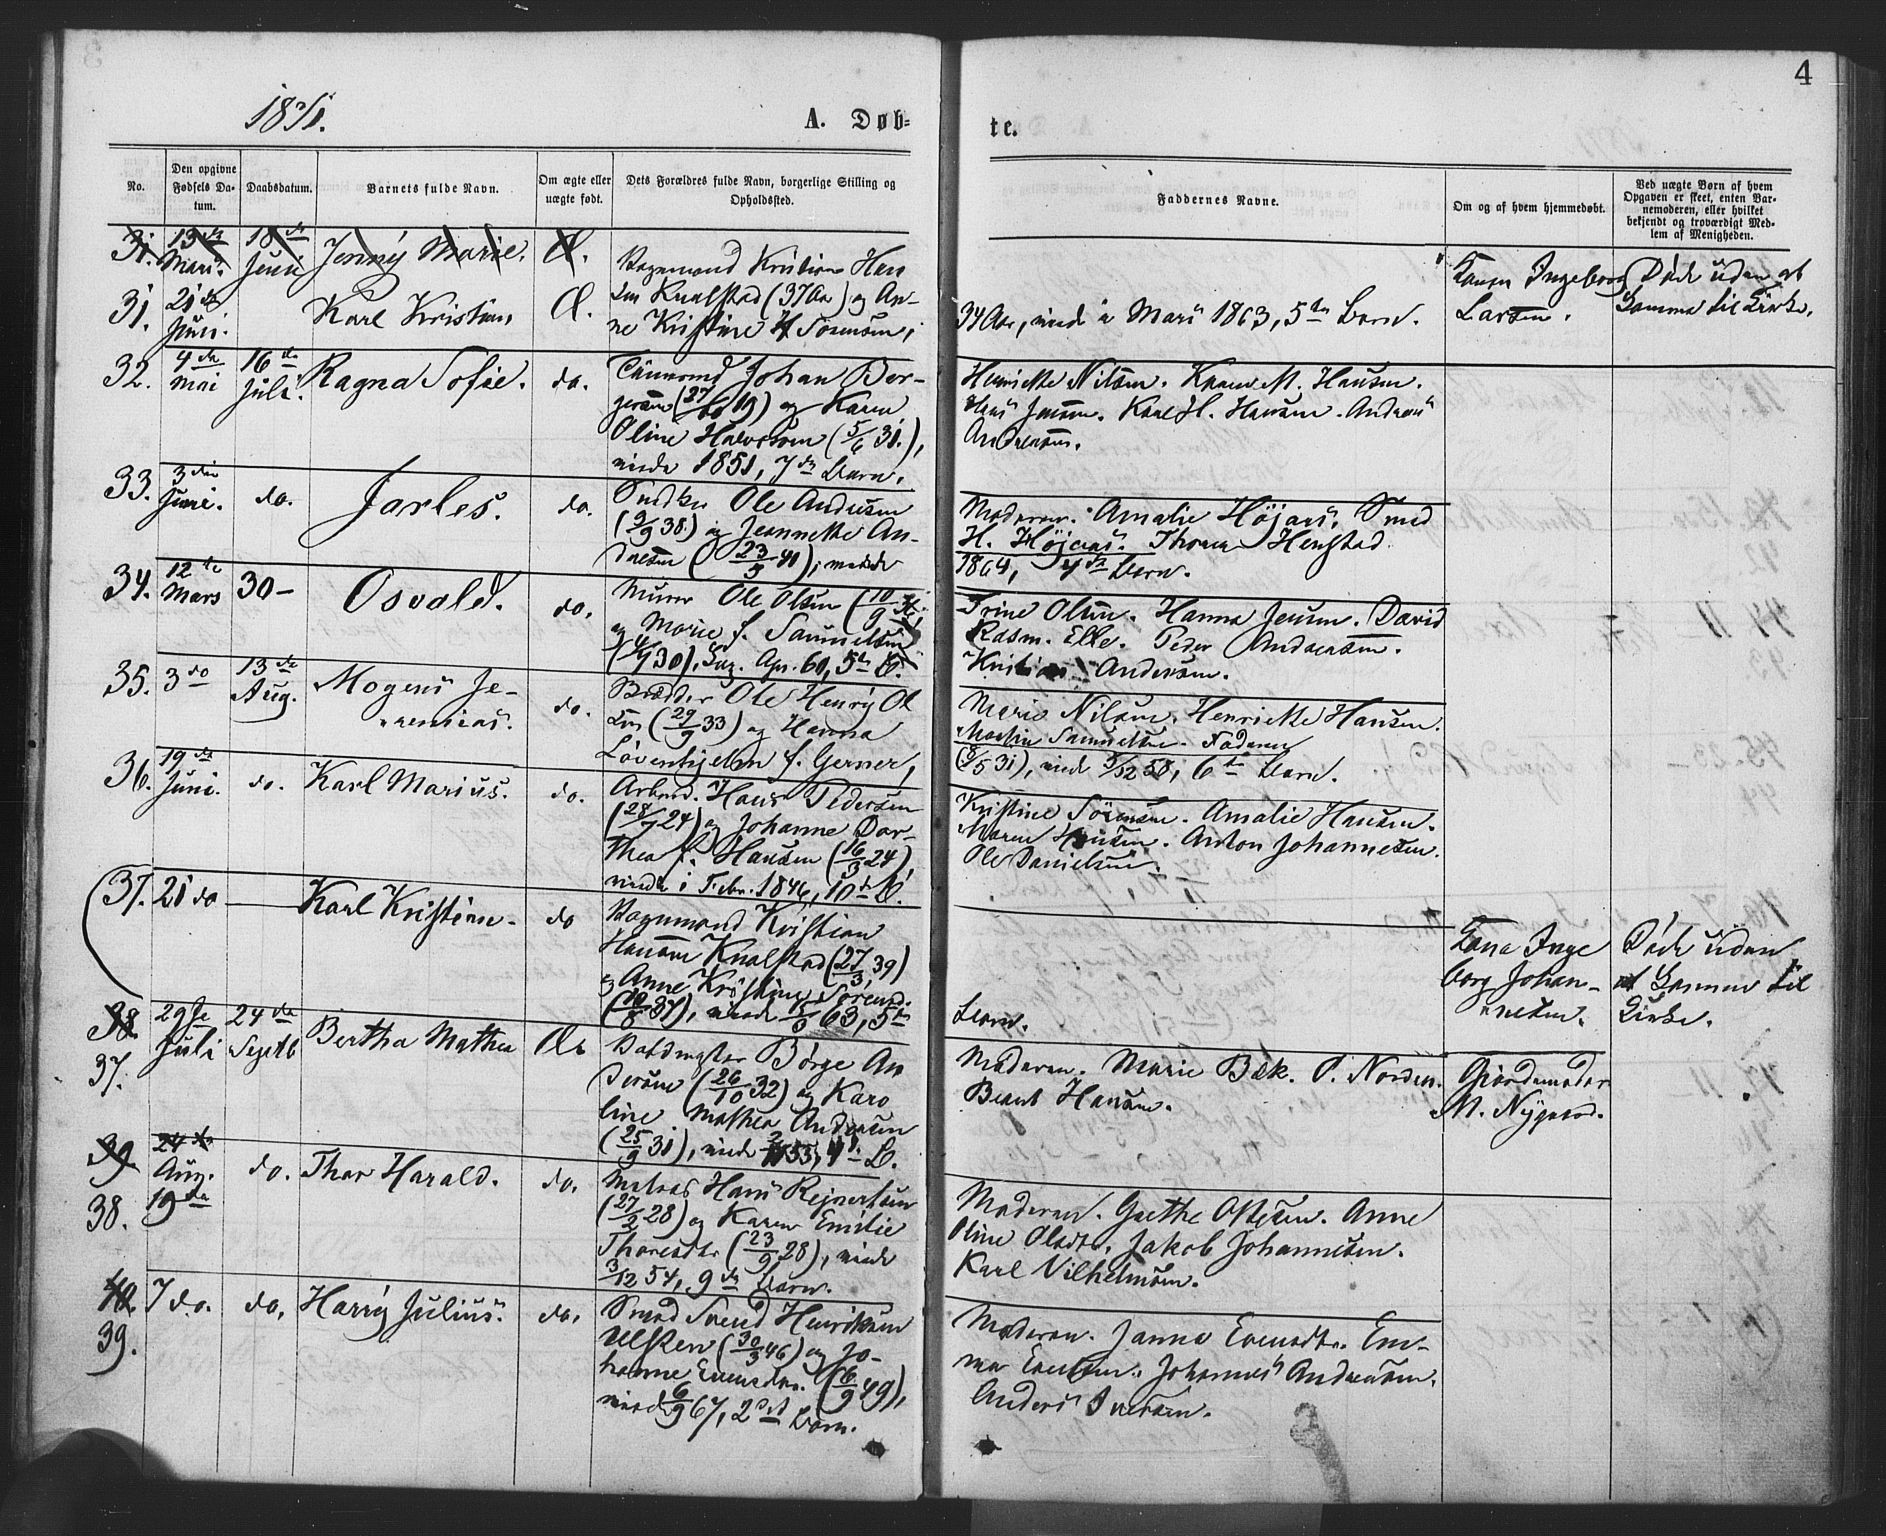 4
1871.
A. Døb-
te.
No.
Den opgivne Fødsels Da-tum.
Daabsdatum.
Barnets fulde Navn.
Om ægte eller uægte født.
Dets Forældres fulde Navn, borgerlige Stilling og Opholdssted.
Faddernes Navne.
Om og af hvem hjemmedøbt.
Ved uægte Børn af hvem Opgaven er skeet, enten Bar-nemoderen, eller hvilket bekjendt og troværdigt Med-lem af Menigheden.
31. 13 de 18 de Jenny Marie. Æ.
Mars. Juni
31. 21 de Karl Kristian, Æ.
Juni.
Kristian Han
sen Knalstad (37 Aar) og An-
ne Kristine H Sörensen,
34 Aar, viede i Mars 1863, 5te Barn.
Karen Ingeborg
Larsen.
Døde uden at
komme til Kirke.
32. 4 de 16 de Ragna Sofie. do.
Mai Juli.
Tömmermd Johan Ber-
(27/10 19) og Karen
Oline Halvorsen (5/6 31.),
viede 1851, 7 de Barn.
Henriette Nilsen. Karen M. Hansen.
Hans Jensen. Karl H. Hansen. Andreas
Andreasen.
33. 3 die do. Jarles. do.
Juni.
Snedker Ole Andersen
(2/9 38) og Jeannette An-
dresen (23/3 41), viede
Moderen. Amalie Höjaas. Smed
H. Höjaas. Thomas Henstad.
1864, 4 de Barn.
34. 12 te 30 – Osvald. do.
Mars
Murer Ole Olsen (10/9
og Marie f. Samuelsen
30), Apr. 60, 5te B.
Trine Olsen. Hanna Jensen. David
Rasm. Elle. Peder Andreasen.
Kristian Andersen.
35. 3 do 13 de Mogens Je- do.
Aug. remias.
Ole Henry Ol
sen (29/9 33) og Hanna
Lövenhjelm f. Gerner,
Marie Nilsen. Henriette Hansen.
Martin Samuelsen. Faderen
(8/5 31), viede 5/12 58, 6te Barn.
36. 19 de do. Karl Marius. do.
Juni.
Arbmd. Hans Pedersen
(28/7 24) og Johanne Dor-
thea f. Hansen (16/3 24)
viede i Febr. 1846, 10de B.
Kristine Sörensen. Amalie Hansen.
Maren Hansen. Anton Johannesen.
Ole Danielsen.
37. 21 do — Karl Kristian – do
Kristian
Hansen Knalstad (27/3 39)
og Anne Kristine Sörensd.
(10/8 37), viede 63, 5te
Barn.
Inge
borg Johan-
nesen.
Døde uden
at komme til
Kirke.
38. 29 de 24 de Bertha Mathea Æ.
37. Juli Septb
Börge An
dersen (26/10 32) og Karo
line Mathea Andersen
(25/9 31), viede 53, 4de B.
Moderen. Marie Bæk. P. Norden.
Bernt Hansen.
Gjordemoder
M. Nygaard.
39 24 de do. Thor Harald. do.
Aug.
38. 19 de
Matros Hans Rejnertsen
(27/2 28) og Karen Emilie
Thoresdtr (23/9 28), viede
3/12 54, 9 de Barn.
Moderen. Grethe Ottesen. Anne
Oline Olsdtr. Jakob Johannesen.
Karl Vilhelmsen.
40. 7 do. do. Harry Julius. do.
39.
Smed Svend Henriksen
Ulsken (30/3 46) og Jo-
hanne Evensdtr. (6/9 49),
viede 6/9 67, 2det Barn.
Moderen. Janna Evensdtr. Em-
ma Evensen. Johannes Andreasen.
Anders Iversen.